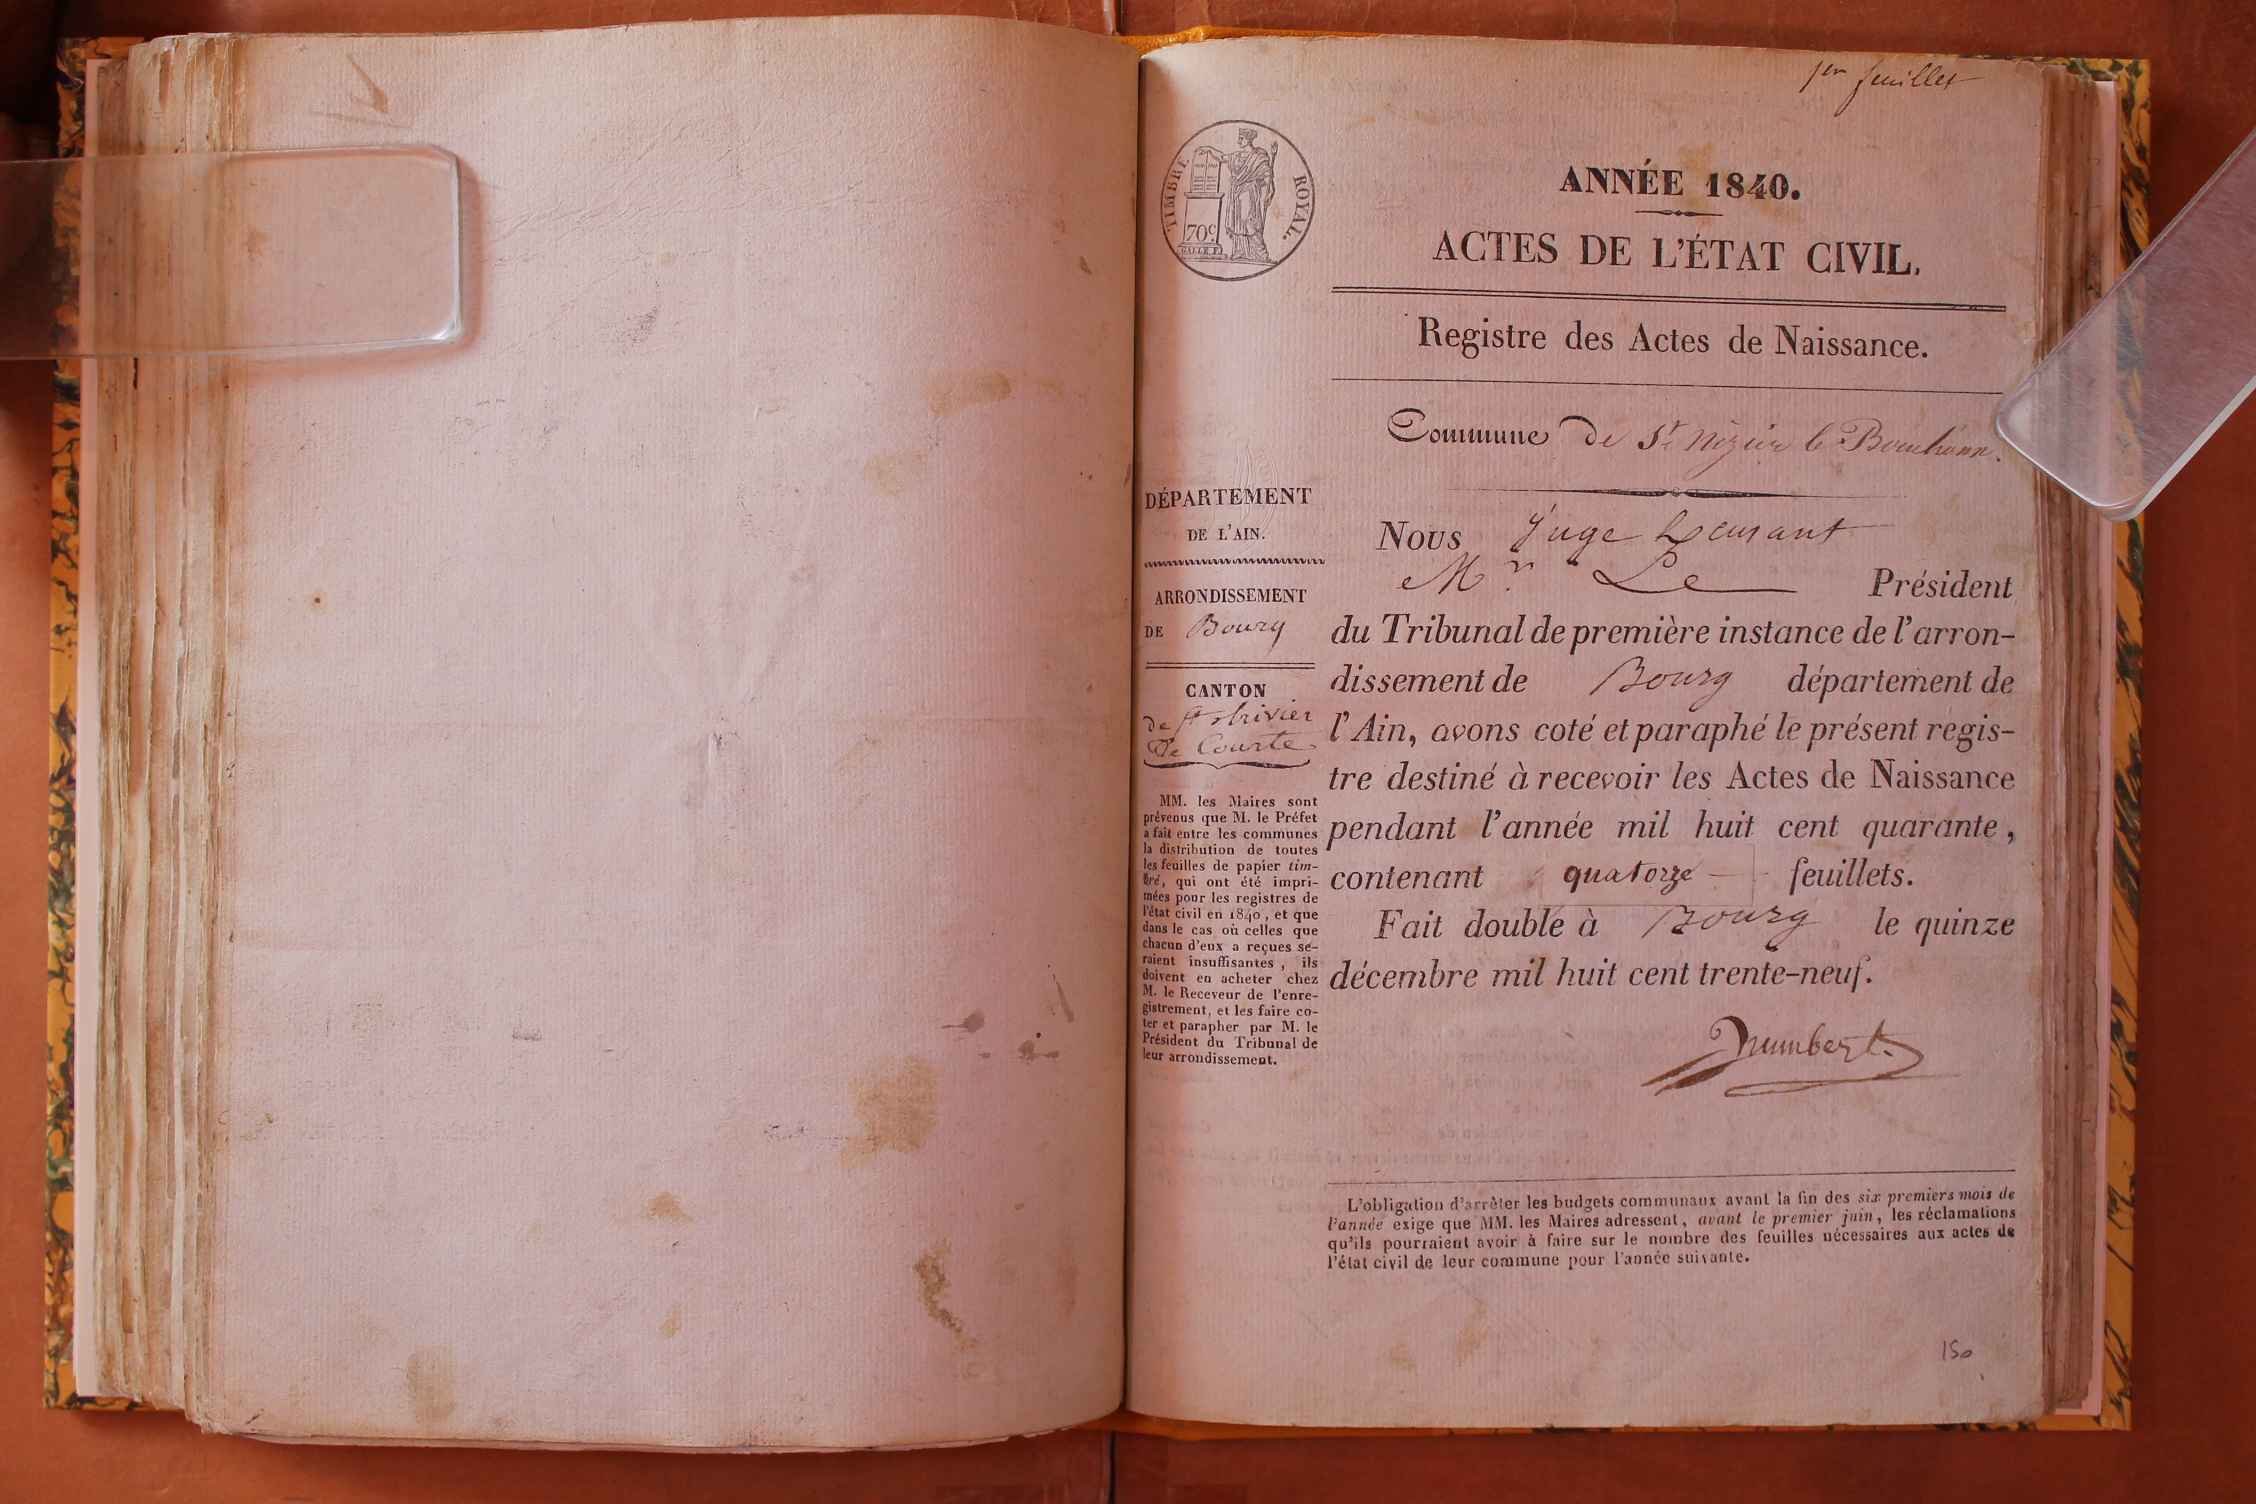 1er feuillet
TIMBRE ROYAL.
70c
ANNÉE 1840.
ACTES DE L'ÉTAT CIVIL.
Registre des Actes de Naissance.
Commune de St Nizier le Bouchoux.
DÉPARTEMENT
DE L'AIN.
ARRONDISSEMENT
DE Bourg
CANTON
de St trivier
De Courte
MM. les Maires sont
prévenus que M. le Préfet
a fait entre les communes
la distribution de toutes
les feuilles de papier tim-
bré, qui ont été impri-
mées pour les registres de
l'état civil en 1840, et que
dans le cas où celles que
chacun d'eux a reçues se-
raient insuffisantes, ils
doivent en acheter chez
M. le Receveur de l'enre-
gistrement, et les faire co-
ter et parapher par M. le
Président du Tribunal de
leur arrondissement.
Nous Juge
Mr Le Président
du Tribunal de première instance de l'arron-
dissement de Bourg département de
l'Ain, avons coté et paraphé le présent regis-
tre destiné à recevoir les Actes de Naissance
pendant l'année mil huit cent quarante,
contenant quatorze feuillets.
Fait double à Bourg le quinze
décembre mil huit cent trente-neuf.
L'obligation d'arrêter les budgets communaux avant la fin des six premiers mois de
l'année exige que MM. les Maires adressent, avant le premier juin, les réclamations
qu'ils pourraient avoir à faire sur le nombre des feuilles nécessaires aux actes de
l'état civil de leur commune pour l'année suivante.
150